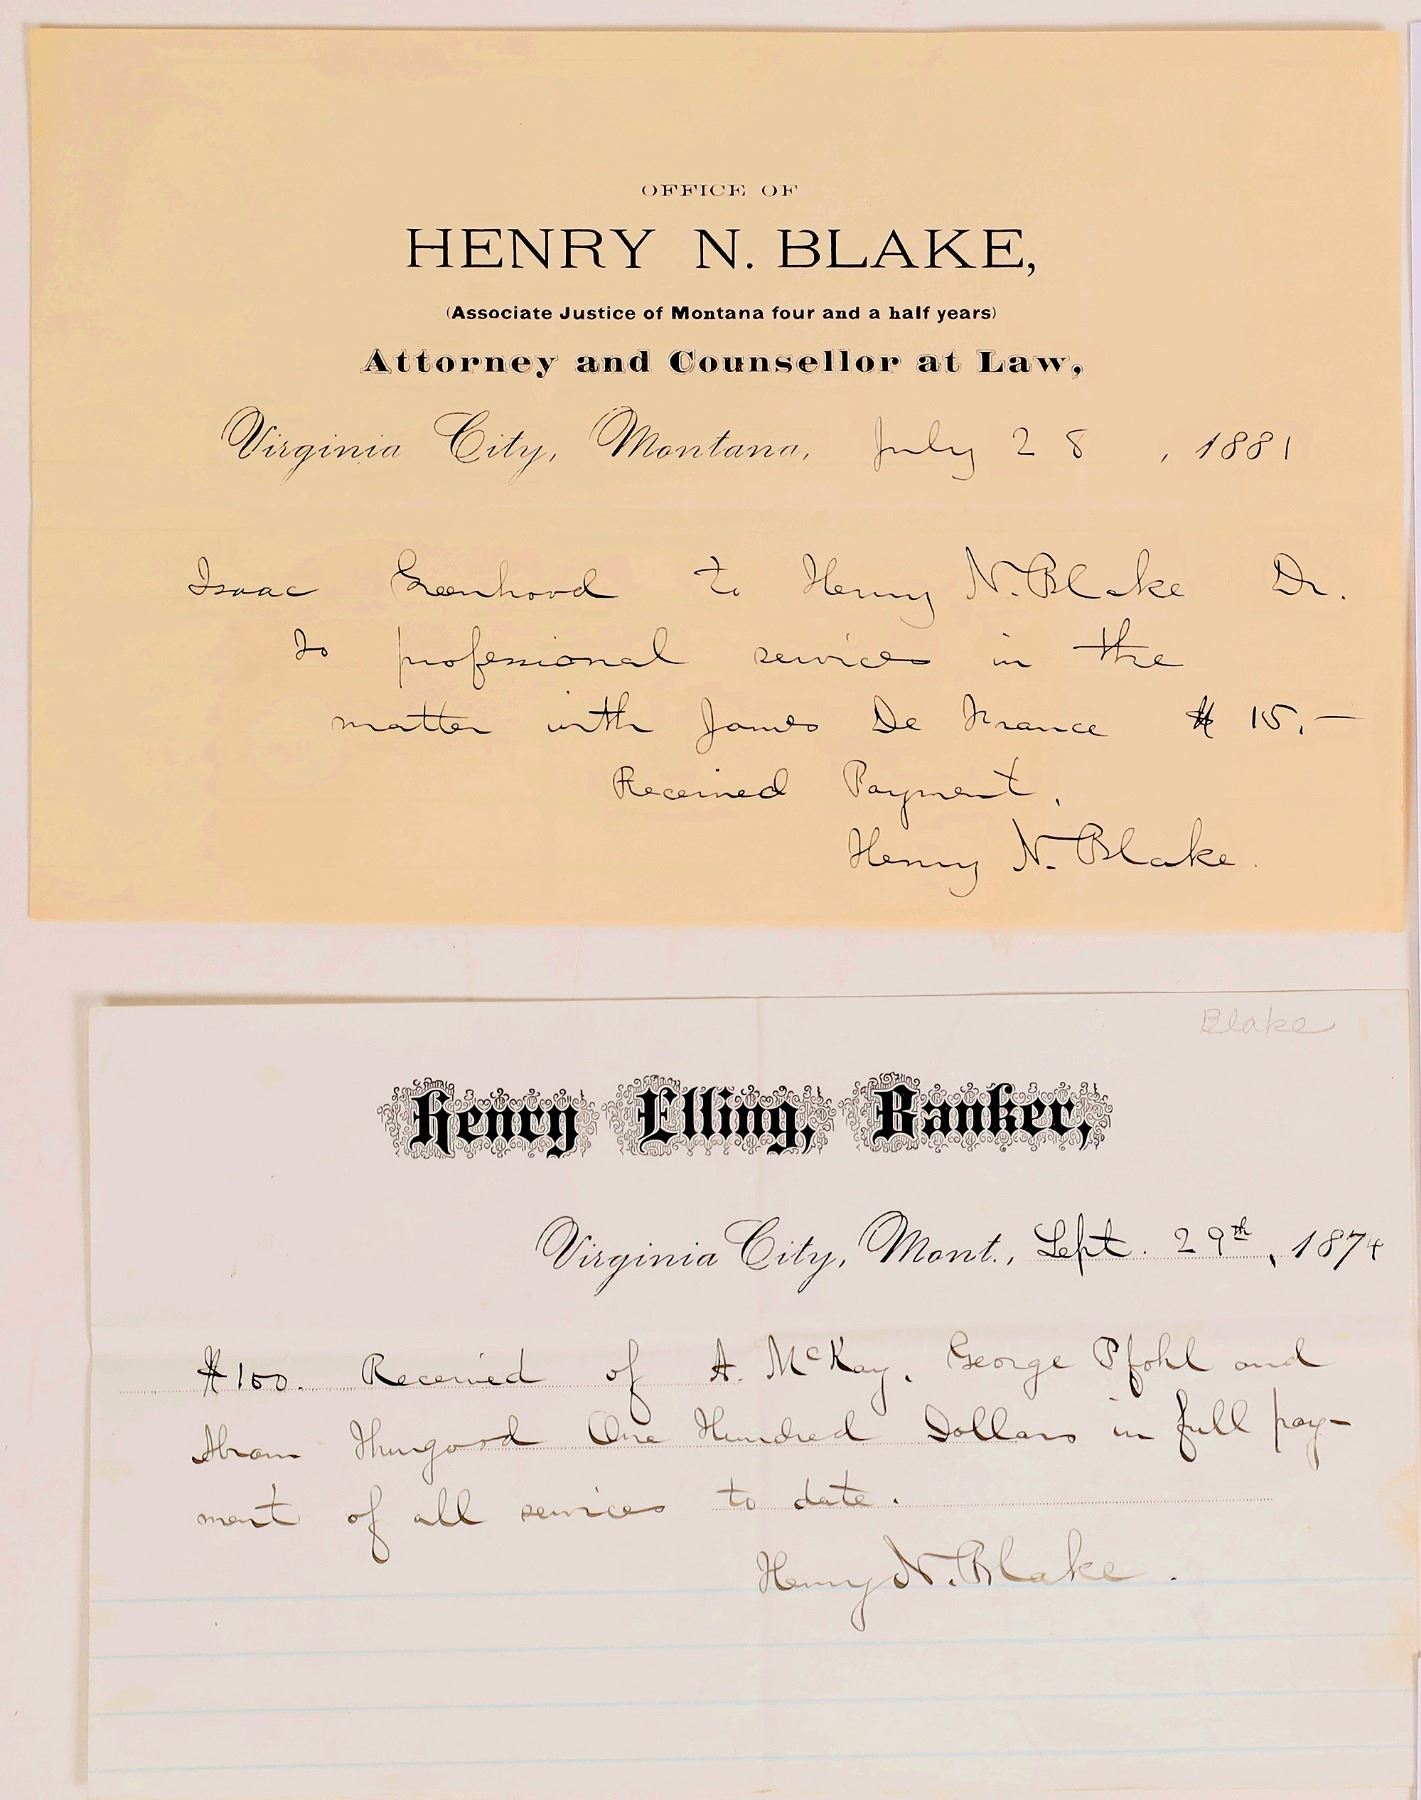 OFFICE OF
HENRY N. BLAKE,
(Associate Justice of Montana four and a half years)
Attorney and Counsellor at Law,
Virginia City, Montana, July 28, 1881
Isaac Greenhood to Henry N. Blake Dr.
To professional services in the
matter with James De France $ 15.—
Received Payment,
Henry N. Blake.
Blake
Henry Elling, Banker,
Virginia City, Mont., Sept. 29th, 1874
$100. Received of A. McKay, George Pfohl and
Abram One Hundred Dollars in full pay-
ment of all services to date.
Henry N. Blake.